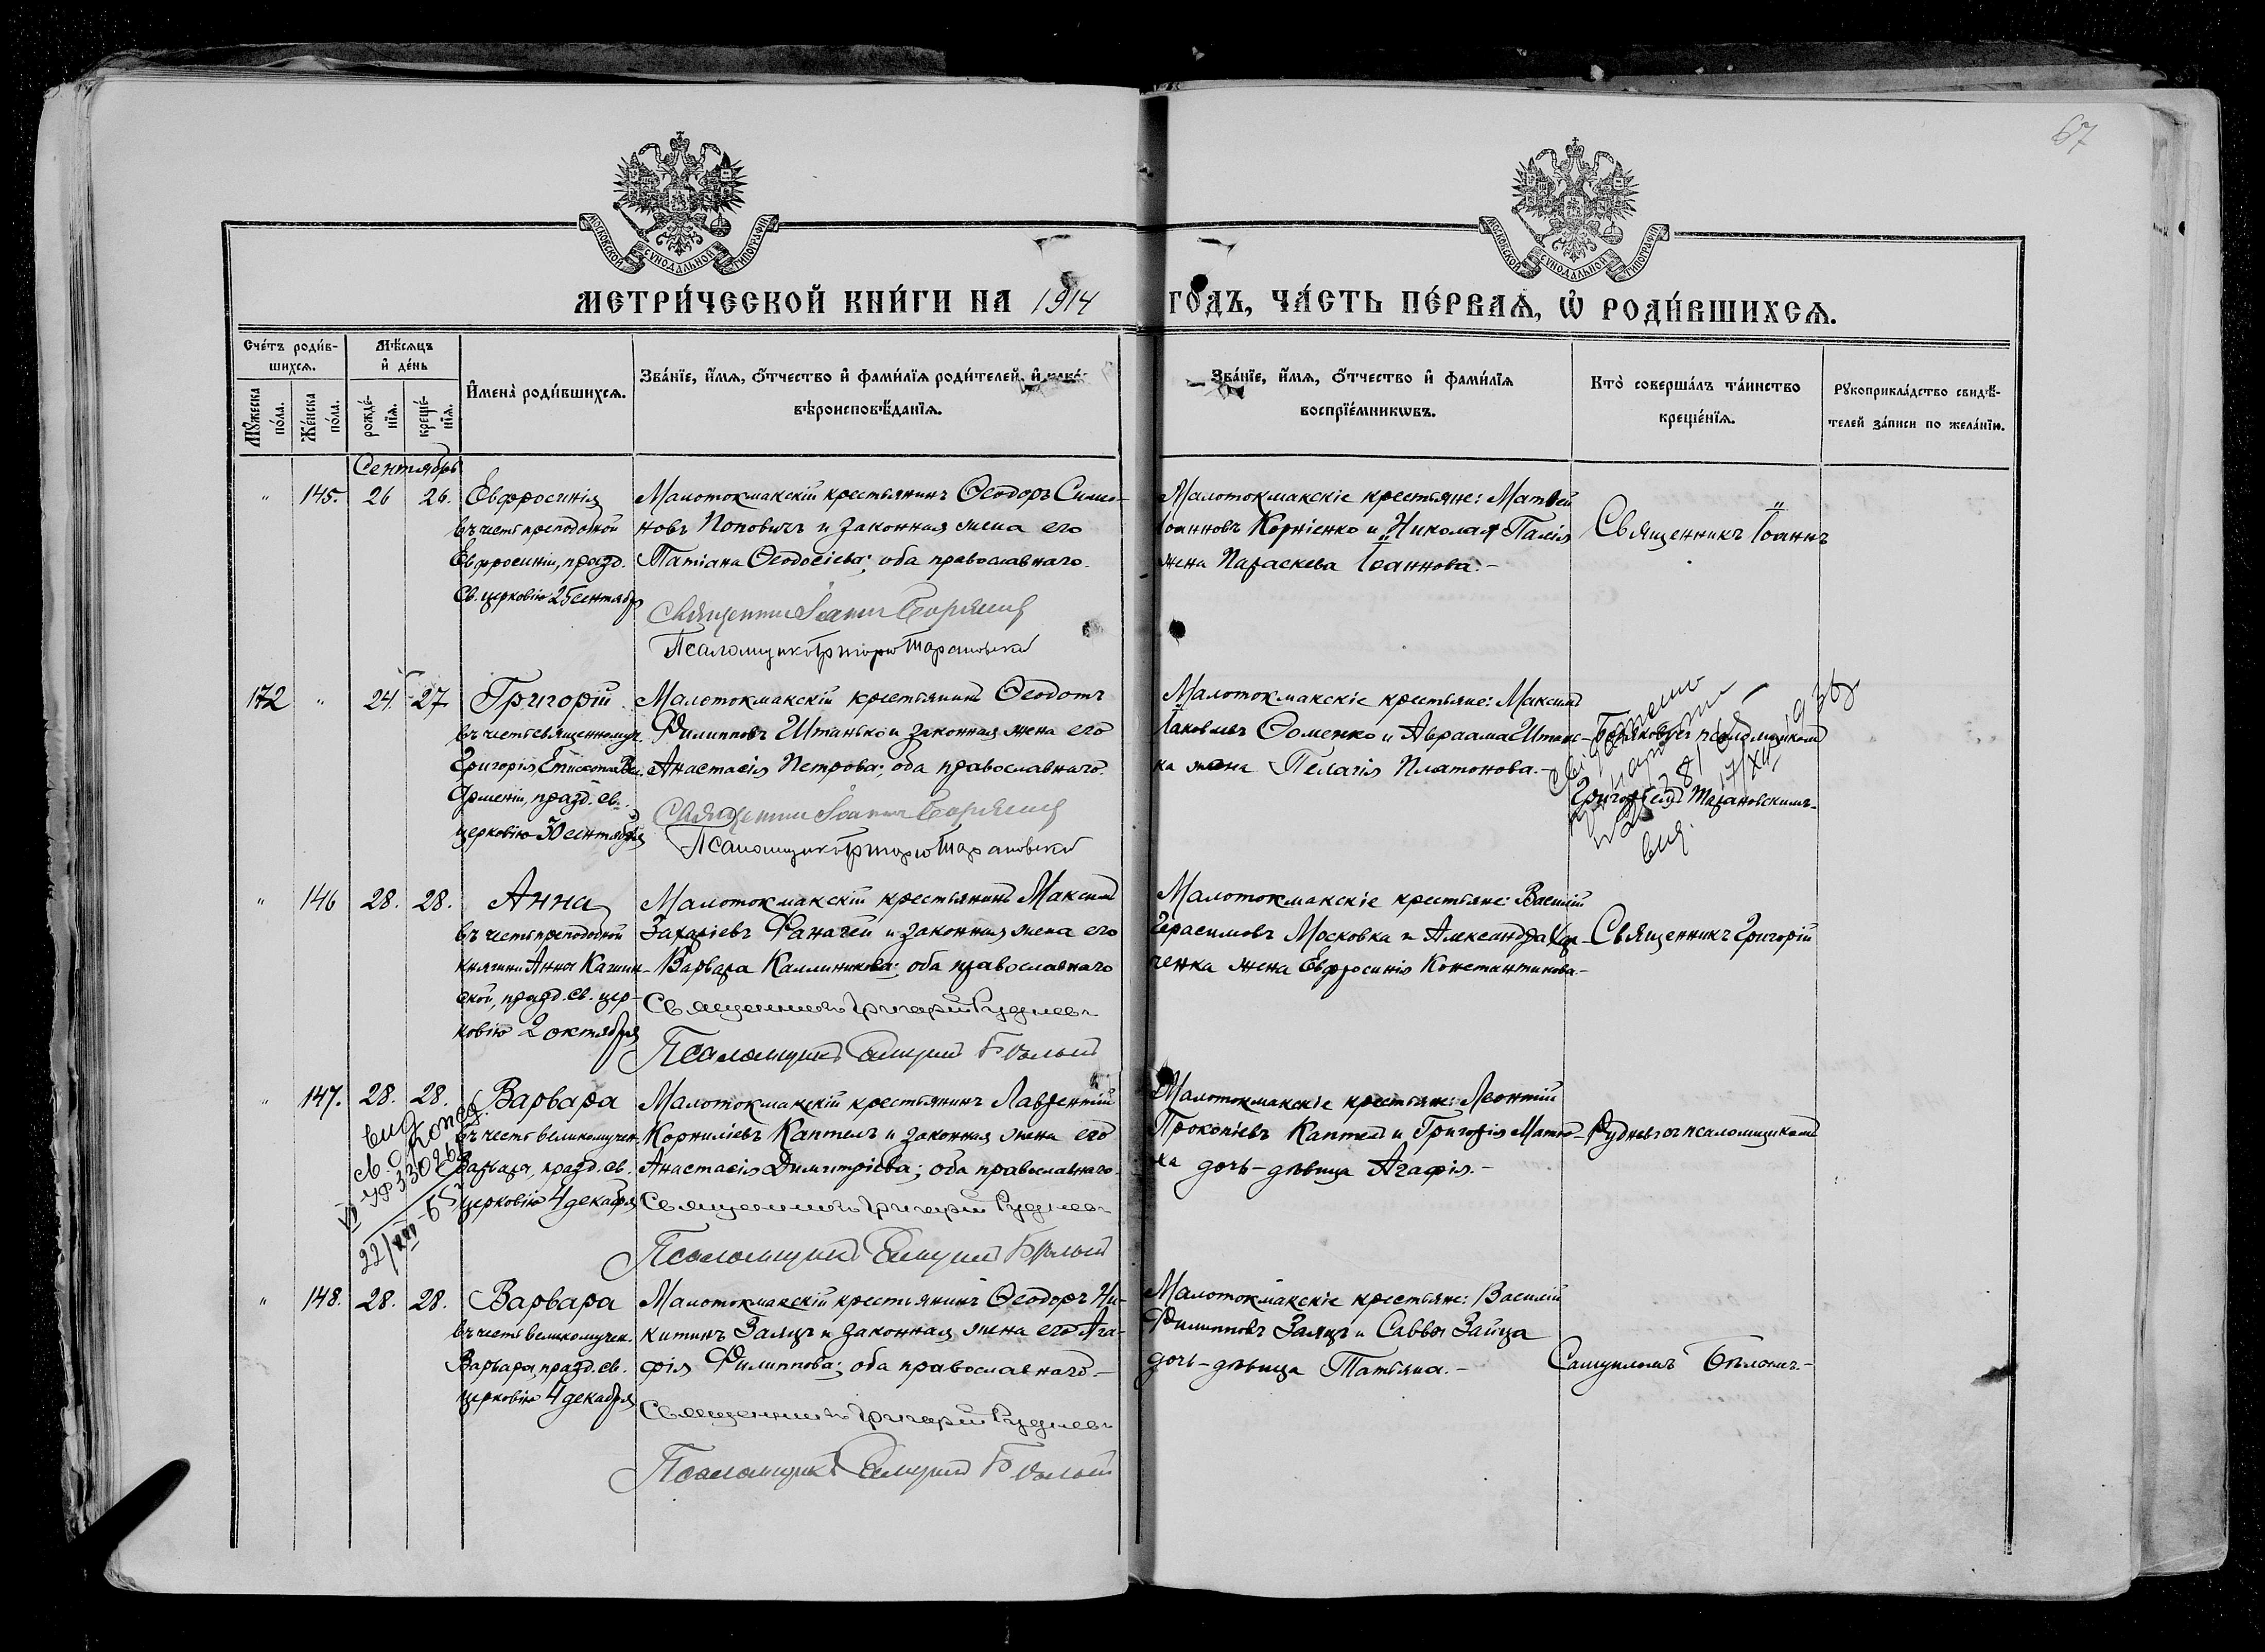 67
МОСКОВСКОЙ СѴНОДАЛЬНОЙ ТИПОГРАФІИ
МОСКОВСКОЙ СѴНОДАЛЬНОЙ ТИПОГРАФІИ
МЕТРИ́ЧЕСКОЙ КНИ́ГИ НА 1914
ГО́ДЪ, ЧА́СТЬ ПЕ́РВАѦ, Ѽ РОДИ́ВШИХСѦ.
Сче́тъ роди́в-
шихсѧ.
Мꙋ́жеска по́ла.
Же́нска по́ла.
Мѣ́сѧцъ
и҆ де́нь
рожде́-
нїѧ.
креще́-
нїѧ.
И҆мена̀ роди́вшихсѧ.
Зва́нїе, и҆́мѧ, ѻ҆́тчество и҆ фами́лїѧ роди́телей, и҆
вѣроисповѣ́данїѧ.
Зва́нїе, и҆́мѧ, ѻ҆́тчество и҆ фами́лїѧ
воспрїе́мникѡвъ.
Кто̀ соверша́лъ та́инство
креще́нїѧ.
Рꙋкоприкла́дство свидѣ́-
телей за́писи по жела́нїю.
Сентябрь
" 145. 26 26. Евфросинія
въ честь преподобной
Евфросиніи, празд.
св. церковію 25 сентября
Малотокмакскій крестьянинъ Ѳеодоръ Симео-
новъ Поповичъ и законная жена его
Татіана Ѳеодосіева; оба православнаго.
Священникъ Іоаннъ
Псаломщикъ Григорій Тарановскій
Малотокмакскіе крестьяне: Матѳей
Іоанновъ Корніенко и Николая Палія
жена Параскева Іоаннова.-
Священникъ Іоаннъ
172 " 24. 27. Григорій
въ честь священномуч.
Григорія, Епископа Вел.
Арменіи, празд. св.
церковію 30 сентября
Малотокмакскій крестьянинъ Ѳеодотъ
Филипповъ Штанько и законная жена его
Анастасія Петрова; оба православнаго.
Священникъ Іоаннъ
Псаломщикъ Григорій Тарановскій
Малотокмакскіе крестьяне: Максимъ
Іаковлевъ Ѳоменко и Авраама Штань-
ка жена Пелагія Платонова.-
съ псаломщикомъ
Григоріемъ Тарановскимъ.
17/XII
вид.
" 146 28. 28. Анна
въ честь преподобной
княгини Анны Кашин-
ской, празд. св. цер-
ковію 2 октября
Малотокмакскій крестьянинъ Максимъ
Захаріевъ Фанагей и законная жена его
Варвара Каллиникова; оба православнаго
Священникъ Григорій Рудневъ
Псаломщикъ Самуилъ Бѣлый
Малотокмакскіе крестьяне: Василій
Герасимовъ Московка и Александра
ченка жена Евфросинія Константинова.-
Священникъ Григорій
" 147. 28. 28. Варвара
въ честь великомучен.
Варвары, празд. св.
церковію 4 декабря
вид
св. о рожд.
УФ 330268
22/VIII-65
Малотокмакскій крестьянинъ Лаврентій
Корниліевъ Каптелъ и законная жена его
Анастасія Димитріева; оба православнаго.
Священникъ Григорій Рудневъ
Псаломщикъ Самуилъ Бѣлый
Малотокмакскіе крестьяне: Леонтій
Прокопіевъ Каптелъ и Григорія
ха дочь-дѣвица Агафія.-
Рудневъ съ псаломщикомъ
" 148. 28. 28. Варвара
въ честь великомучен.
Варвары, празд. св.
церковію 4 декабря
Малотокмакскій крестьянинъ Ѳеодоръ Ни-
китинъ Заяцъ и законная жена его Ага-
фія Филиппова; оба православнаго.-
Священникъ Григорій Рудневъ
Псаломщикъ Самуилъ Бѣлый
Малотокмакскіе крестьяне: Василій
Филипповъ Заяцъ и Саввы Зайца
дочь-дѣвица Татьяна.-
Самуиломъ Бѣлымъ.-